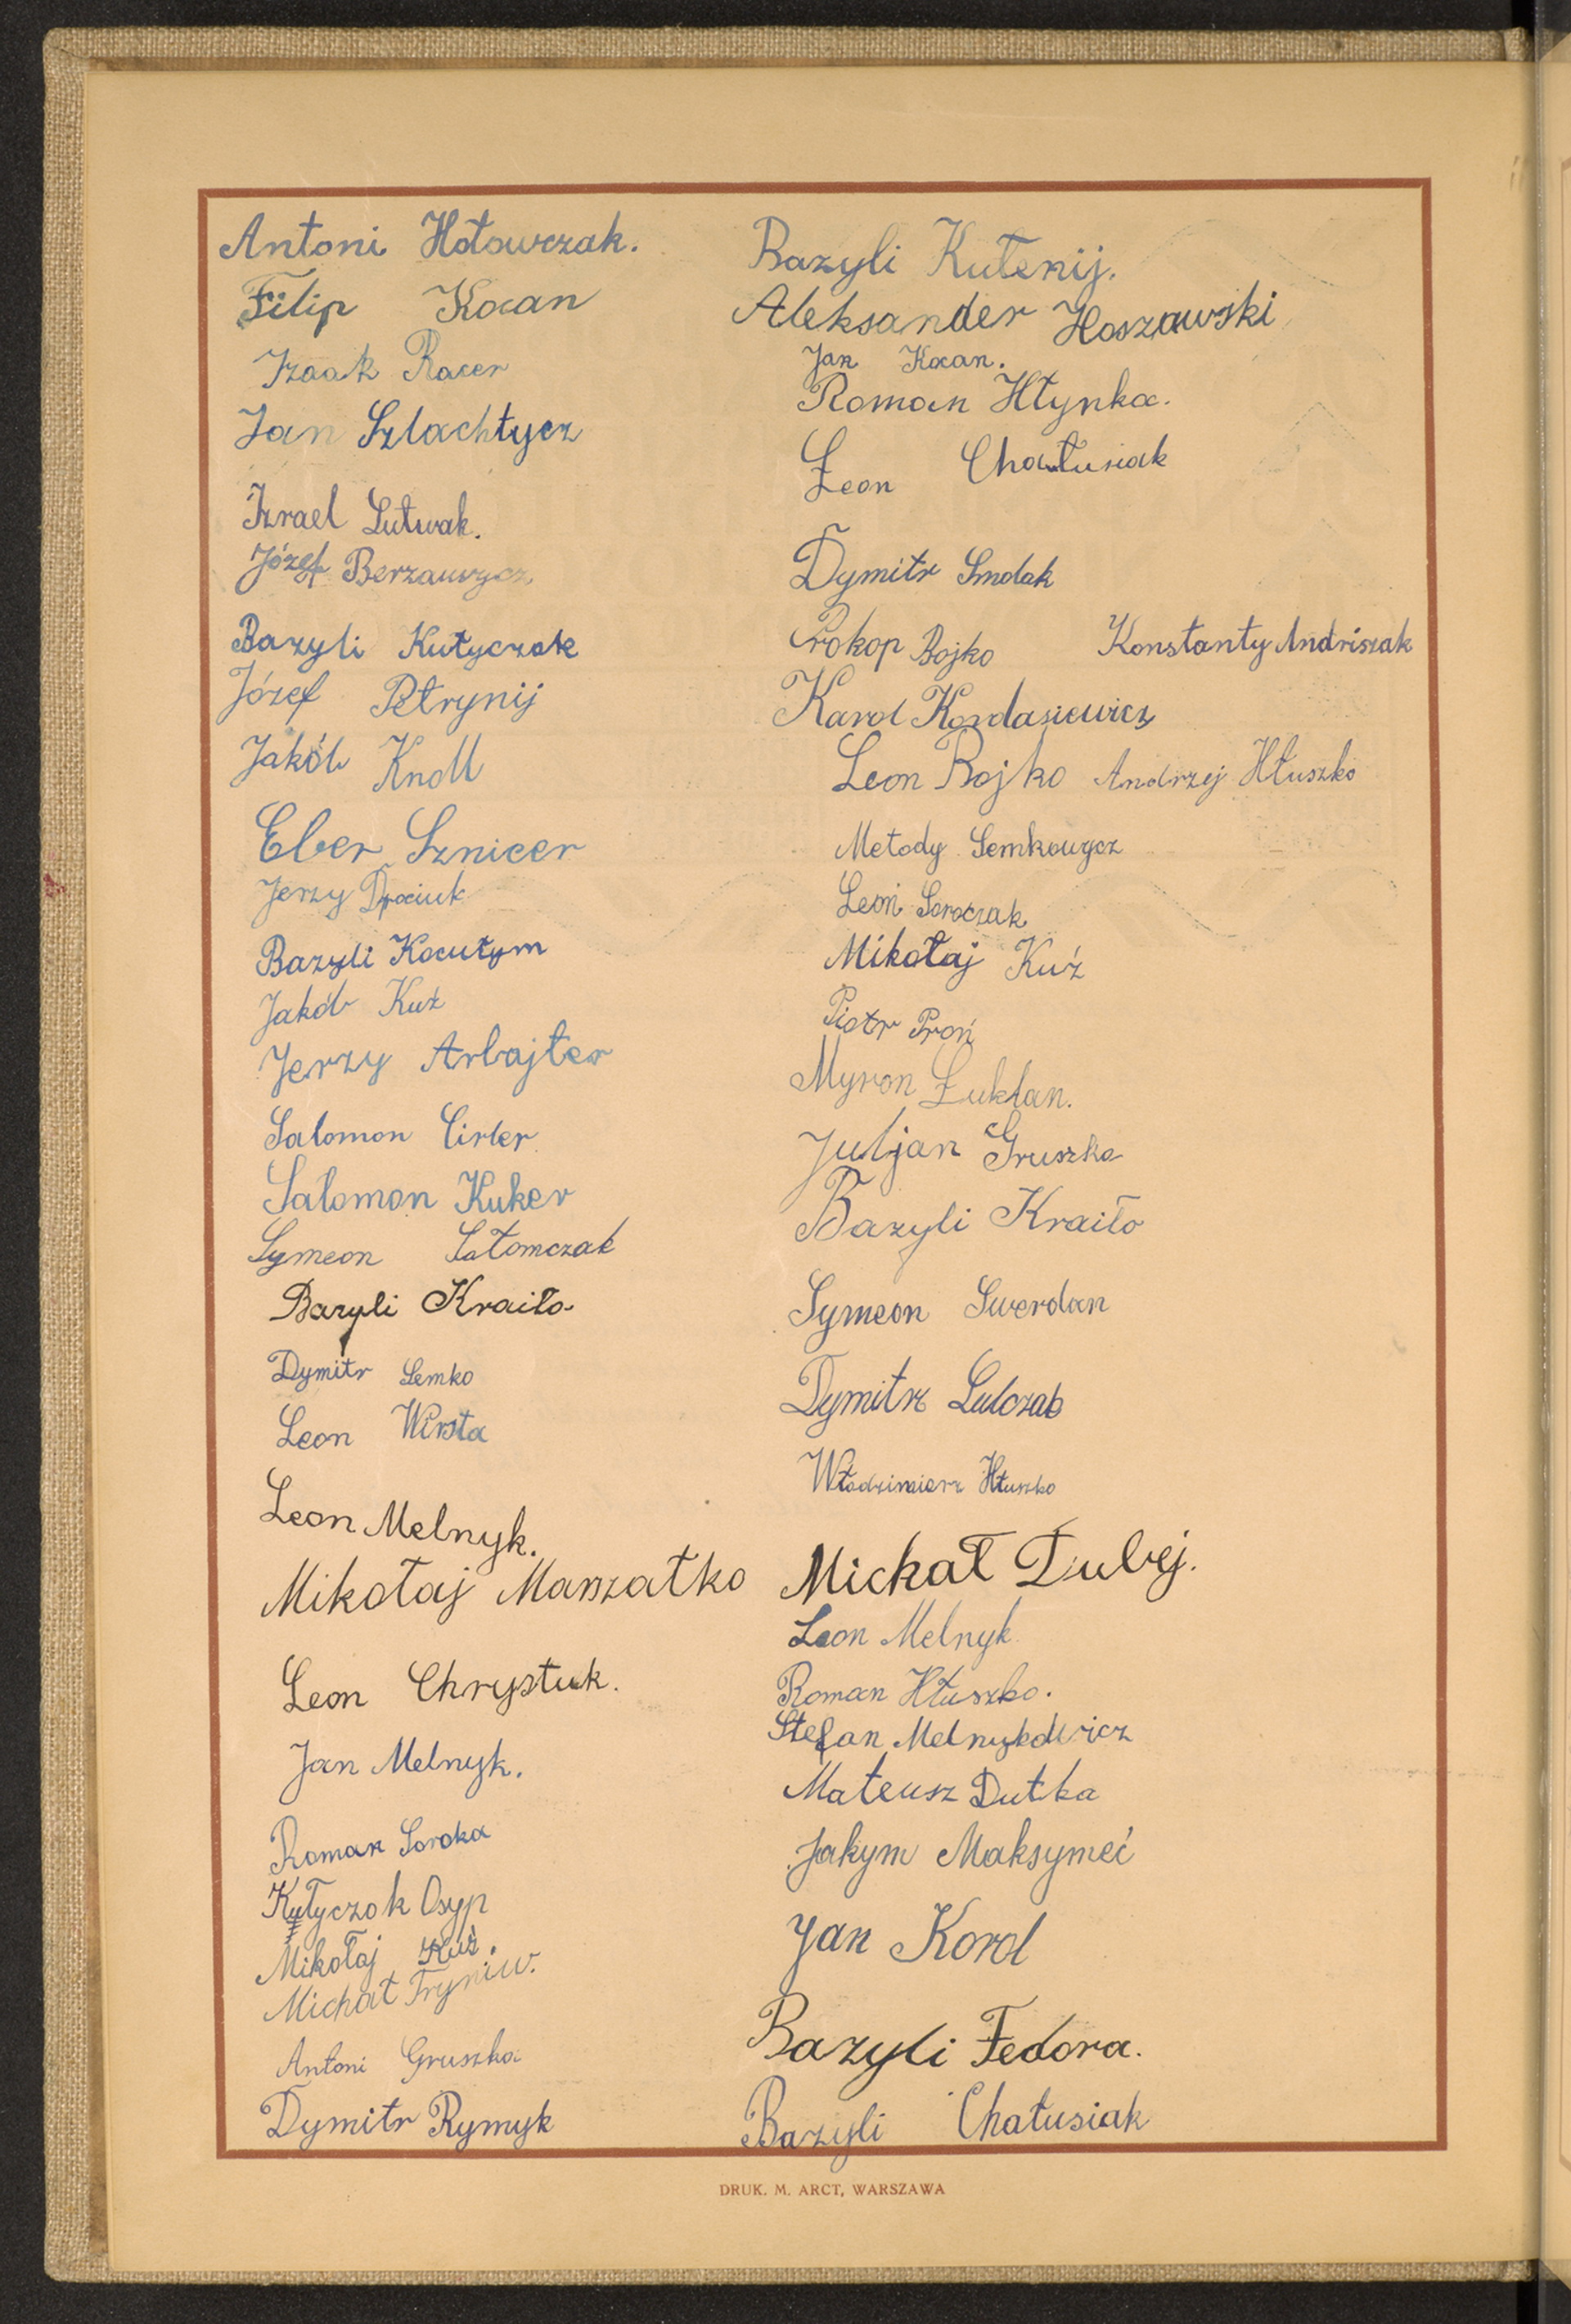 Antoni Hołowczak.
Filip Kocan
Izaak Racer
Jan Szlachtycz
Izrael Lutwak.
Józef Berzawycz
Bazyli Kutyczak
Józef Petrynij
Jakób Knoll
Eber Sznicer
Jerzy
Bazyli Kocułym
Jakób Kuź
Jerzy Arbajter
Salomon Cirler
Salomon Kuker
Symeon Sałomczak
Bazyli Kraiło
Dymitr Semko
Leon Wirsta
Leon Melnyk.
Mikołaj Marszałko
Leon Chrystuk.
Jan Melnyk.
Roman Soroka
Kułyczok Osyp
Mikołaj Kuź.
Michał Fryniw.
Antoni Gruszka
Dymitr Rymyk
Bazyli Kułenij.
Aleksander Hoszawski
Jan Kocan.
Roman Hłynka.
Leon Chałusiak
Dymitr Smolak
Prokop Bojko Konstanty Andriszak
Karol Kordasiewicz
Leon Bojko Andrzej Hłuszko
Metody Semkowycz
Leon Soroczak
Mikołaj Kuź
Piotr Proń
Myron Łukłan.
Juljan Gruszka
Bazyli Kraiło
Symeon Swerdan
Dymitr Lulczak
Włodzimierz Hłuszko
Michał Dubej.
Leon Melnyk
Roman Hłuszko.
Stefan Melnykowicz
Mateusz Dutka
Jakym Maksymeć
Jan Korol
Bazyli Fedora.
Bazyli Chałusiak
DRUK. M. ARCT, WARSZAWA